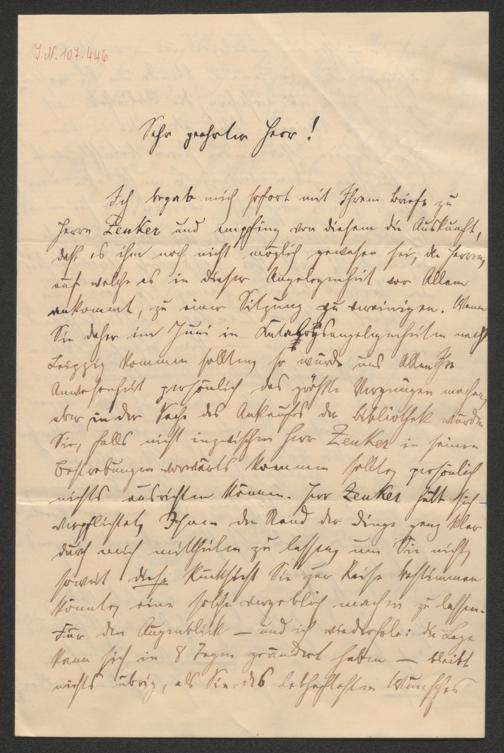 I.N. 107.446
Sehr geehrter Herr!
Ich begab mich sofort mit Ihrem Briefe zu
Herrn Zenker und empfing von diesem die Auskunft,
daß es ihm noch nicht möglich gewesen sei, die Herren,
auf welche es in dieser Angelegenheit vor Allem
ankommt, zu einer Sitzung zu vereinigen. Wenn
Sie daher im Juni in Katalogsangelegenheiten nach
Leipzig kommen sollten, so würde uns Allen Ihre
Anwesenheit persönlich das größte Vergnügen machen,
aber in der Sache des Ankaufs der Bibliothek würden
Sie, falls nicht inzwischen Herr Zenker in seinen
Bestrebungen vorwärts kommen sollte, persönlich
nichts ausrichten können. Herr Zenker hält sich
verpflichtet, Ihnen den Stand der Dinge ganz klar
durch mich mittheilen zu lassen, um Sie nicht,
soweit diese Rücksicht Sie zur Reise bestimmen
könnte, eine solche vergeblich machen zu lassen.
Für den Augenblick — und ich wiederhole: die Lage
kann sich in 8 Tagen geändert haben — bleibt
nichts übrig, als Sie des lebhaftesten Wunsches